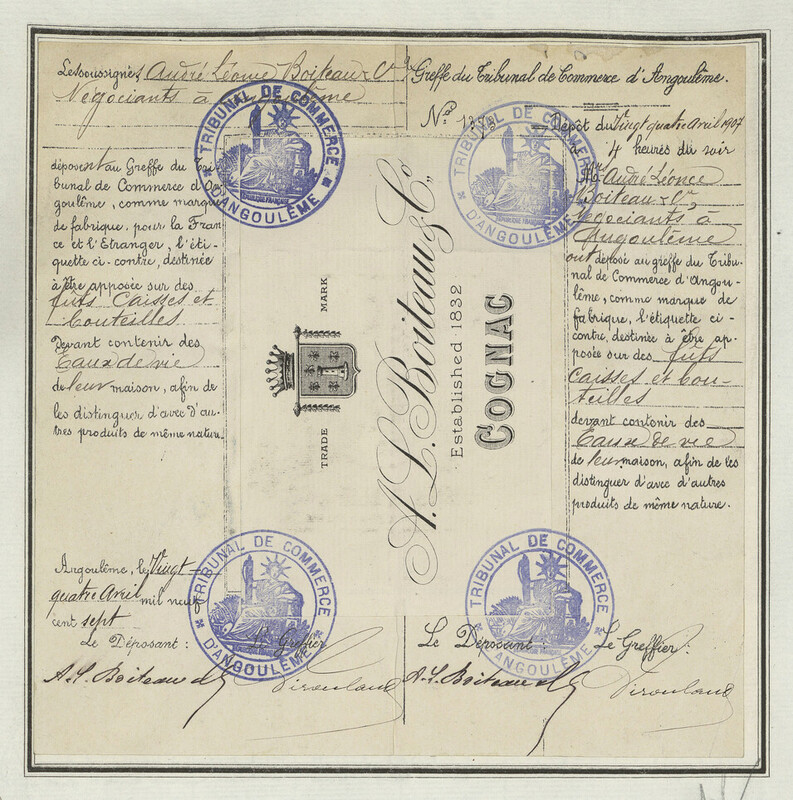 Les soussignés André Léonce Boiteau & Cie
Négociants à Angoulême
déposent au Greffe du Tri-
bunal de Commerce d'An-
goulême, comme marque
de fabrique, pour la Fran-
ce et l'Etranger, l'éti-
quette ci-contre, destinée
à être apposée sur des
fûts Caisses et
bouteilles
devant contenir des
Eaux de vie
de leur maison, afin de
les distinguer d'avec d'au-
tres produits de même nature.
Angoulême, le Vingt
quatre Avril mil neuf
cent sept
Le Déposant : Le Greffier
A. L. Boiteau & Cie
TRADE MARK
A. L. Boiteau & Co.,
Established 1832
COGNAC
Greffe du Tribunal de Commerce d'Angoulême.
No
Dépôt du Vingt quatre Avril 1907
4 heures du soir
Mr André Léonce
Boiteau & Cie,
négociants à
Angoulême
ont déposé au greffe du Tribu-
nal de Commerce d'Angou-
lême, comme marque de
fabrique, l'étiquette ci-
contre, destinée à être ap-
posée sur des fûts
caisses et bou-
teilles
devant contenir des
Eaux de vie
de leur maison, afin de les
distinguer d'avec d'autres
produits de même nature.
Le Déposant : Le Greffier :
A. L. Boiteau & Cie
TRIBUNAL DE COMMERCE
D'ANGOULÊME
RÉPUBLIQUE FRANÇAISE
TRIBUNAL DE COMMERCE
D'ANGOULÊME
RÉPUBLIQUE FRANÇAISE
TRIBUNAL DE COMMERCE
D'ANGOULÊME
TRIBUNAL DE COMMERCE
D'ANGOULÊME